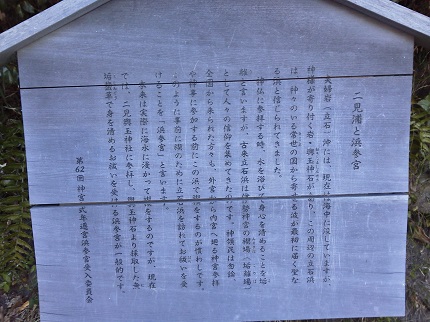 二見浦と浜参宮
夫婦岩（立石）沖には、現在は海中に没していますが
神様が寄り付く岩・興玉神石があり、この周辺の立石浜
は、神々のいる常世の国から寄せる波が最初に届く聖な
る浜と信じられてきました。
神仏に参拝する時、水を浴びて身心を清めることを垢
離と言いますが、古来立石浜は伊勢神宮の禊場（垢離場）
として人々の信仰を集めてきたのです。神領民は勿論
全国から来られた方々も、外宮から内宮へ廻る神宮参拝
や神事に参加する前にこの浜で禊をするのが慣わしです。
このように事前に禊のために立石浜を訪れてお祓いを受
けることを「浜参宮」と言います。
本来は実際に海水に浸かって禊をするのですが、現在
では、二見興玉神社に参拝し、興玉神石より採取した無
垢塩草で身を清めるお祓いを受ける浜参宮が一般的です。
第62回神宮式年遷宮浜参宮受入委員会